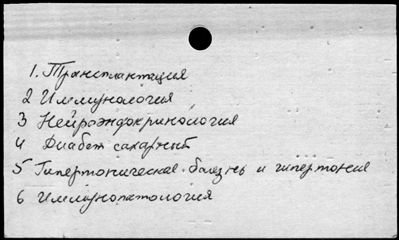 1. Трансплантация
2 Иммунология
3 Нейроэндокринология
4 Диабет сахарный
5 Гипертоническая болезнь и гипертония
6 Иммунопатология